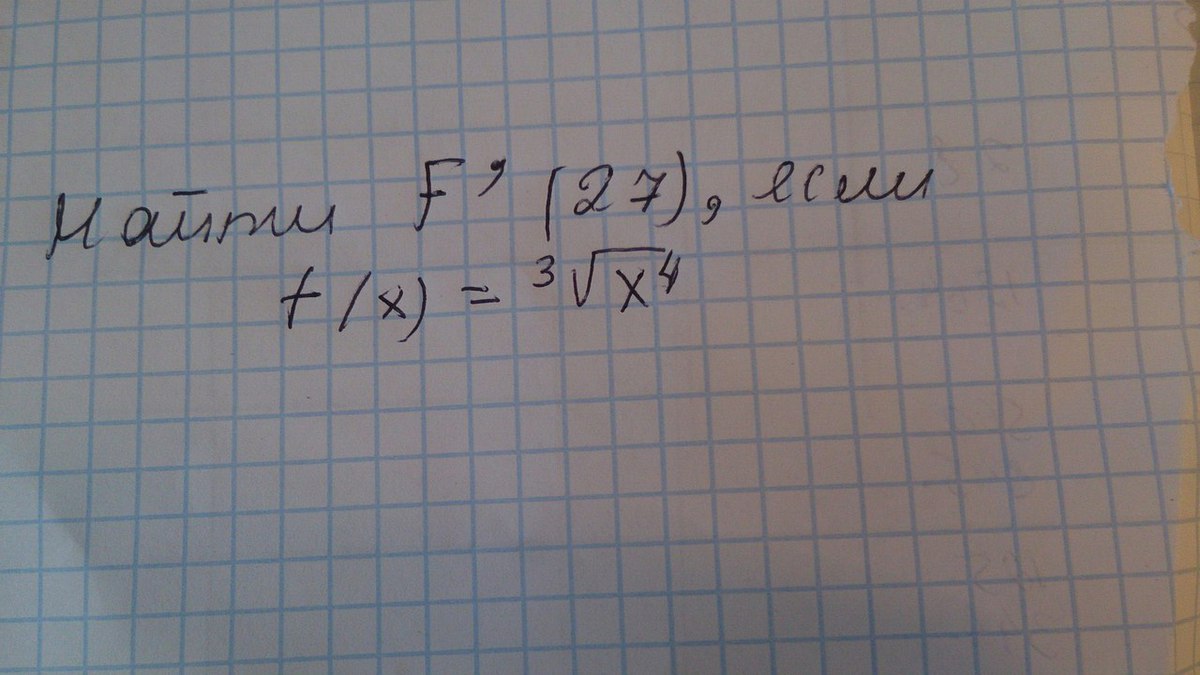 Найти F' (27), если
f(x) = ³√x⁴